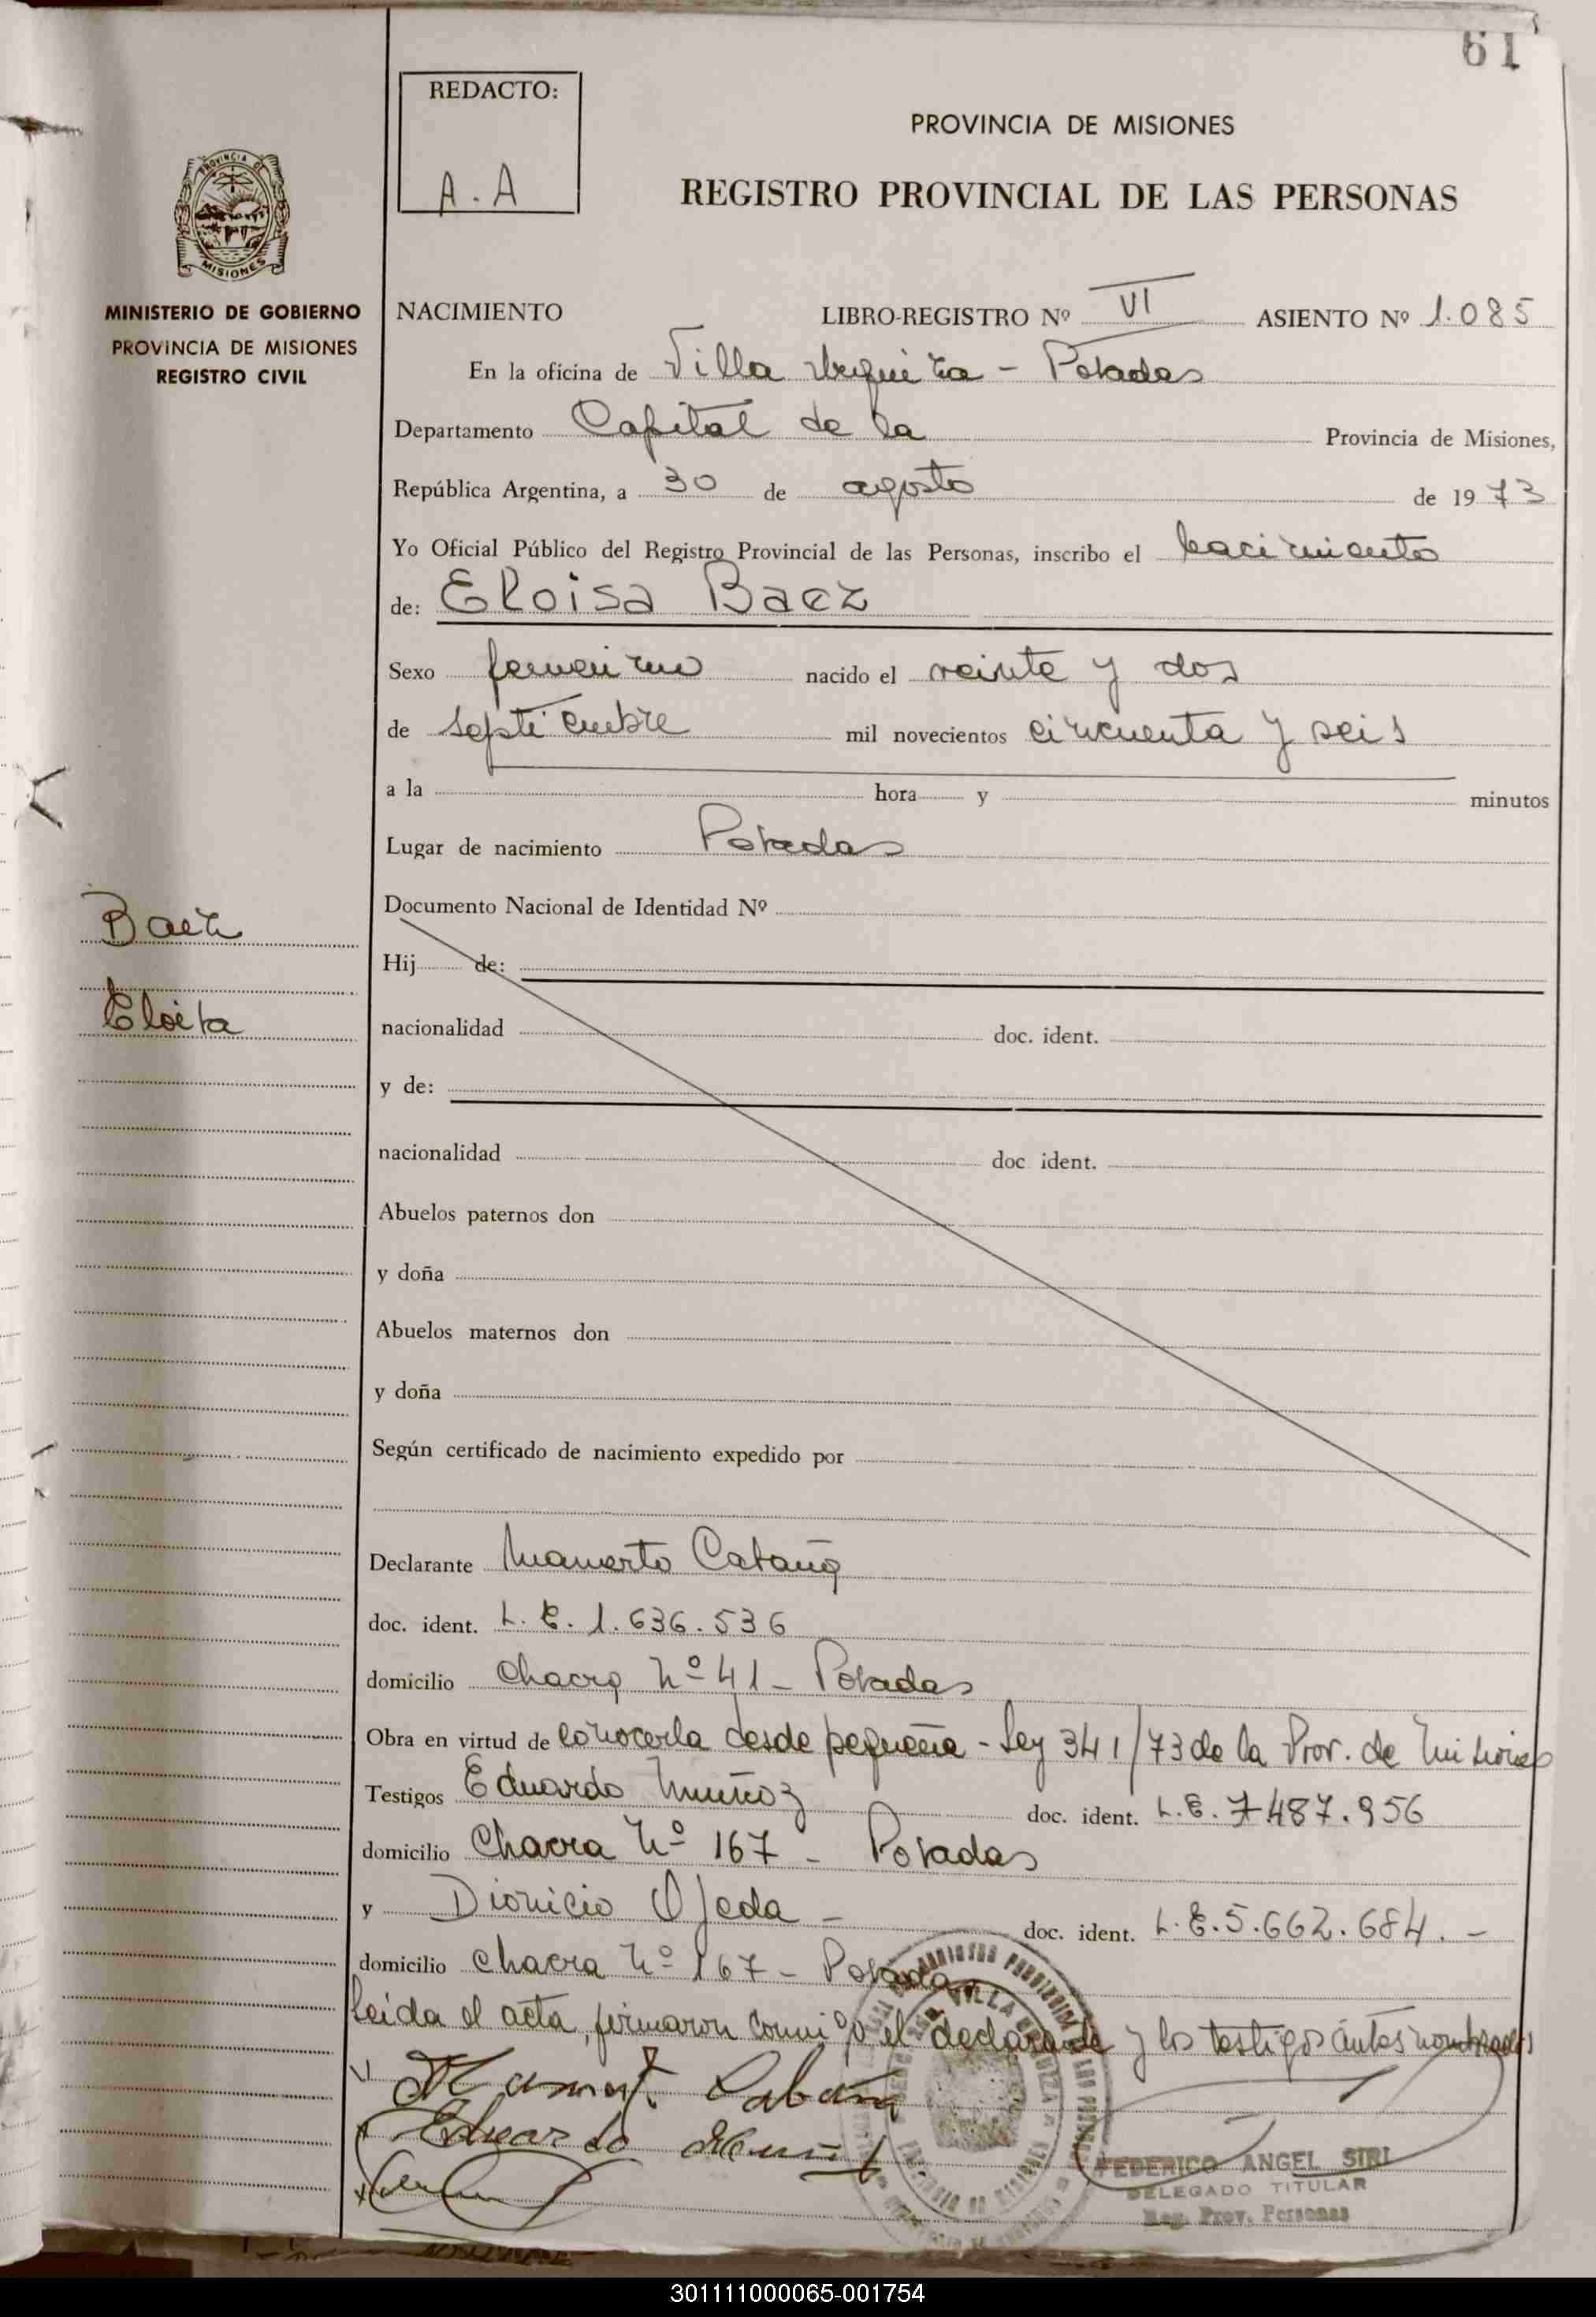 61
REDACTO:
A.A
PROVINCIA DE MISIONES
REGISTRO PROVINCIAL DE LAS PERSONAS
PROVINCIA DE
MISIONES
MINISTERIO DE GOBIERNO
PROVINCIA DE MISIONES
REGISTRO CIVIL
NACIMIENTO LIBRO-REGISTRO Nº VI ASIENTO Nº 1.085
En la oficina de Villa Urquiza - Posadas
Departamento Capital de la Provincia de Misiones,
República Argentina, a 30 de agosto de 1973
Yo Oficial Público del Registro Provincial de las Personas, inscribo el nacimiento
de: Eloisa Baez
Sexo femenino nacido el veinte y dos
de septiembre mil novecientos cincuenta y seis
a la hora y minutos
Lugar de nacimiento Posadas
Documento Nacional de Identidad Nº
Baez
Hij de:
Eloisa
nacionalidad doc. ident.
y de:
nacionalidad doc ident.
Abuelos paternos don
y doña
Abuelos maternos don
y doña
Según certificado de nacimiento expedido por
Declarante Mamerto Cabaña
doc. ident. L.E. 1.636.536
domicilio Chacra Nº 41 - Posadas
Obra en virtud de conocerla desde pequeña - Ley 341/73 de la Prov. de Misiones
Testigos Eduardo Muñoz doc. ident. L.E. 7487.956
domicilio Chacra Nº 167 - Posadas
y Dionicio Ojeda - doc. ident. L.E. 5.662.684. -
domicilio Chacra Nº 167 - Posadas
Leida el acta, firmaron conmigo el declarante y los testigos antes nombrados
Mamerto Cabaña
Eduardo Muñoz
FEDERICO ANGEL SIRI
DELEGADO TITULAR
Reg. Prov. Personas
301111000065-001754